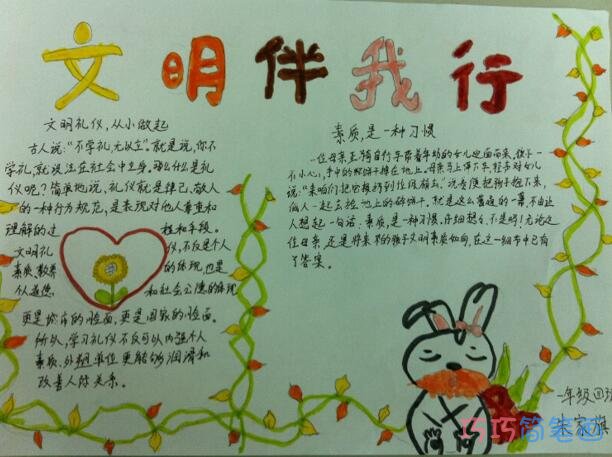 文明伴我行
文明礼仪,从小做起
古人说:“不学礼,无以立”。就是说,你不
学礼,就没法在社会中立身。那么什么是礼
仪呢?简单地说,礼仪就是律己、敬人
的一种行为规范,是表现对他人尊重和
理解的过程和手段。
文明礼仪,不仅是个人
素质、教养的体现,也是
个人道德和社会公德的体现
更是城市的脸面,更是国家的脸面。
所以,学习礼仪不仅可以内强个人
素质、外塑单位更能够润滑和
改善人际关系。
素质,是一种习惯
一位母亲正骑自行车带着年幼的女儿迎面而来,孩子一
不小心,手中的碎饼干掉在地上。母亲马上停下车,拉着对女儿
说:“来咱们把它捡到垃圾箱去”说着便把孩子抱下来,
俩人一起去捡地上的碎饼干。就是这么普通的一幕,不由让
人想起一句话:素质,是一种习惯。仔细想想,不是吗!无论这
位母亲,还是将来的孩子文明素质如何,在这一细节中已有
了答案。
一年级四班
朱家旗
巧巧简笔画